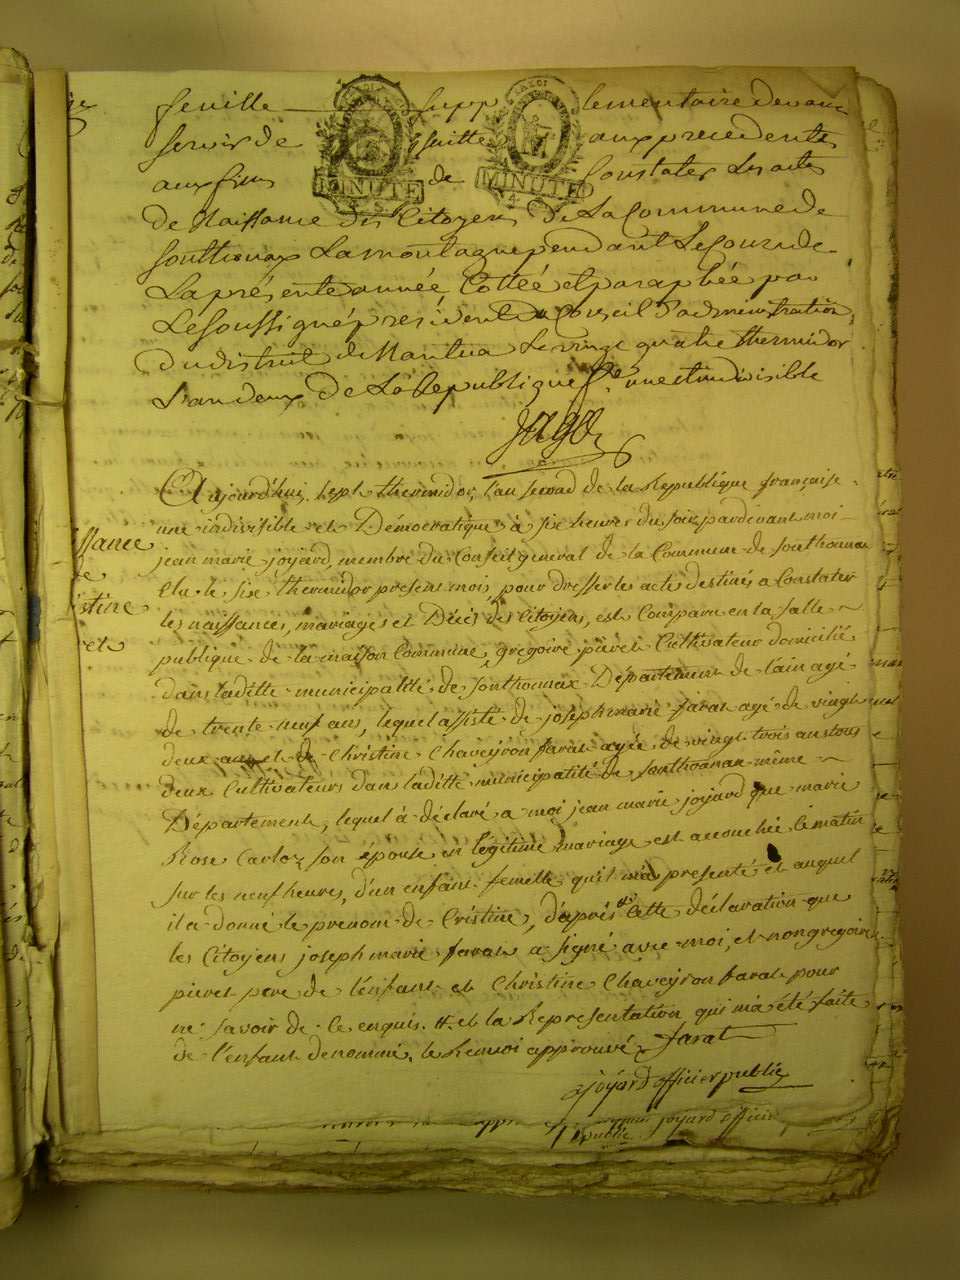 feuille supplementaire devant
servir de suitte aux precedentes
aux fins de Constater Les actes
de Naissance des Citoyens de La Commune de
Sonthonax Lamontagne pendant Le Cours de
La présente année Cottée et paraphée par
Le Soussigné président du Conseil d'administration
du district de Nantua Le vingt quatre thermidor
L'an deux de La République f.se une et indivisible
Jagot
MINUTE
MINUTE
Aujourd'huy sept thermidor, l'an second de la République française
une indivisible et Démocratique à six heures du soir, pardevant moi
jean marie joyard, membre du Conseil general de la Commune de Sonthonnax
Elu le six thermidor présens mois, pour dresser les actes destinés a Constater
les naissances, mariages et Décès des Citoyens, est Comparu en la salle
publique de la maison Commune, gregoire pievet Cultivateur domicilié
dans ladite municipalité de Sonthonnax Département de l'ain agé
de trente neuf ans, lequel assisté de joseph marie farat agé de vingt
deux ans et de Christine Chaveyron farat agée de vingt trois ans tous
deux Cultivateurs dans laditte municipalité de Sonthonnax même
Département, lequel à déclaré a moi jean marie joyard que marie
Rose Carloz son épouse en légitime mariage est accouchée ce matin
sur les neuf heures, d'un enfant femelle qu'il m'a presenté et auquel
il a donné le prenom de Cristine, d'après Cette déclaration que
les Citoyens joseph marie farat a signé avec moi, et non gregoire
pievet pere de l'enfant et Christine Chaveyron farat pour
ne savoir de ce enquis. # et la Représentation qui m'a été faite
de l'enfant denommé, le Renvoi approuvé farat
joyard officier public
joyard officier
public
ssance
de
istine
et